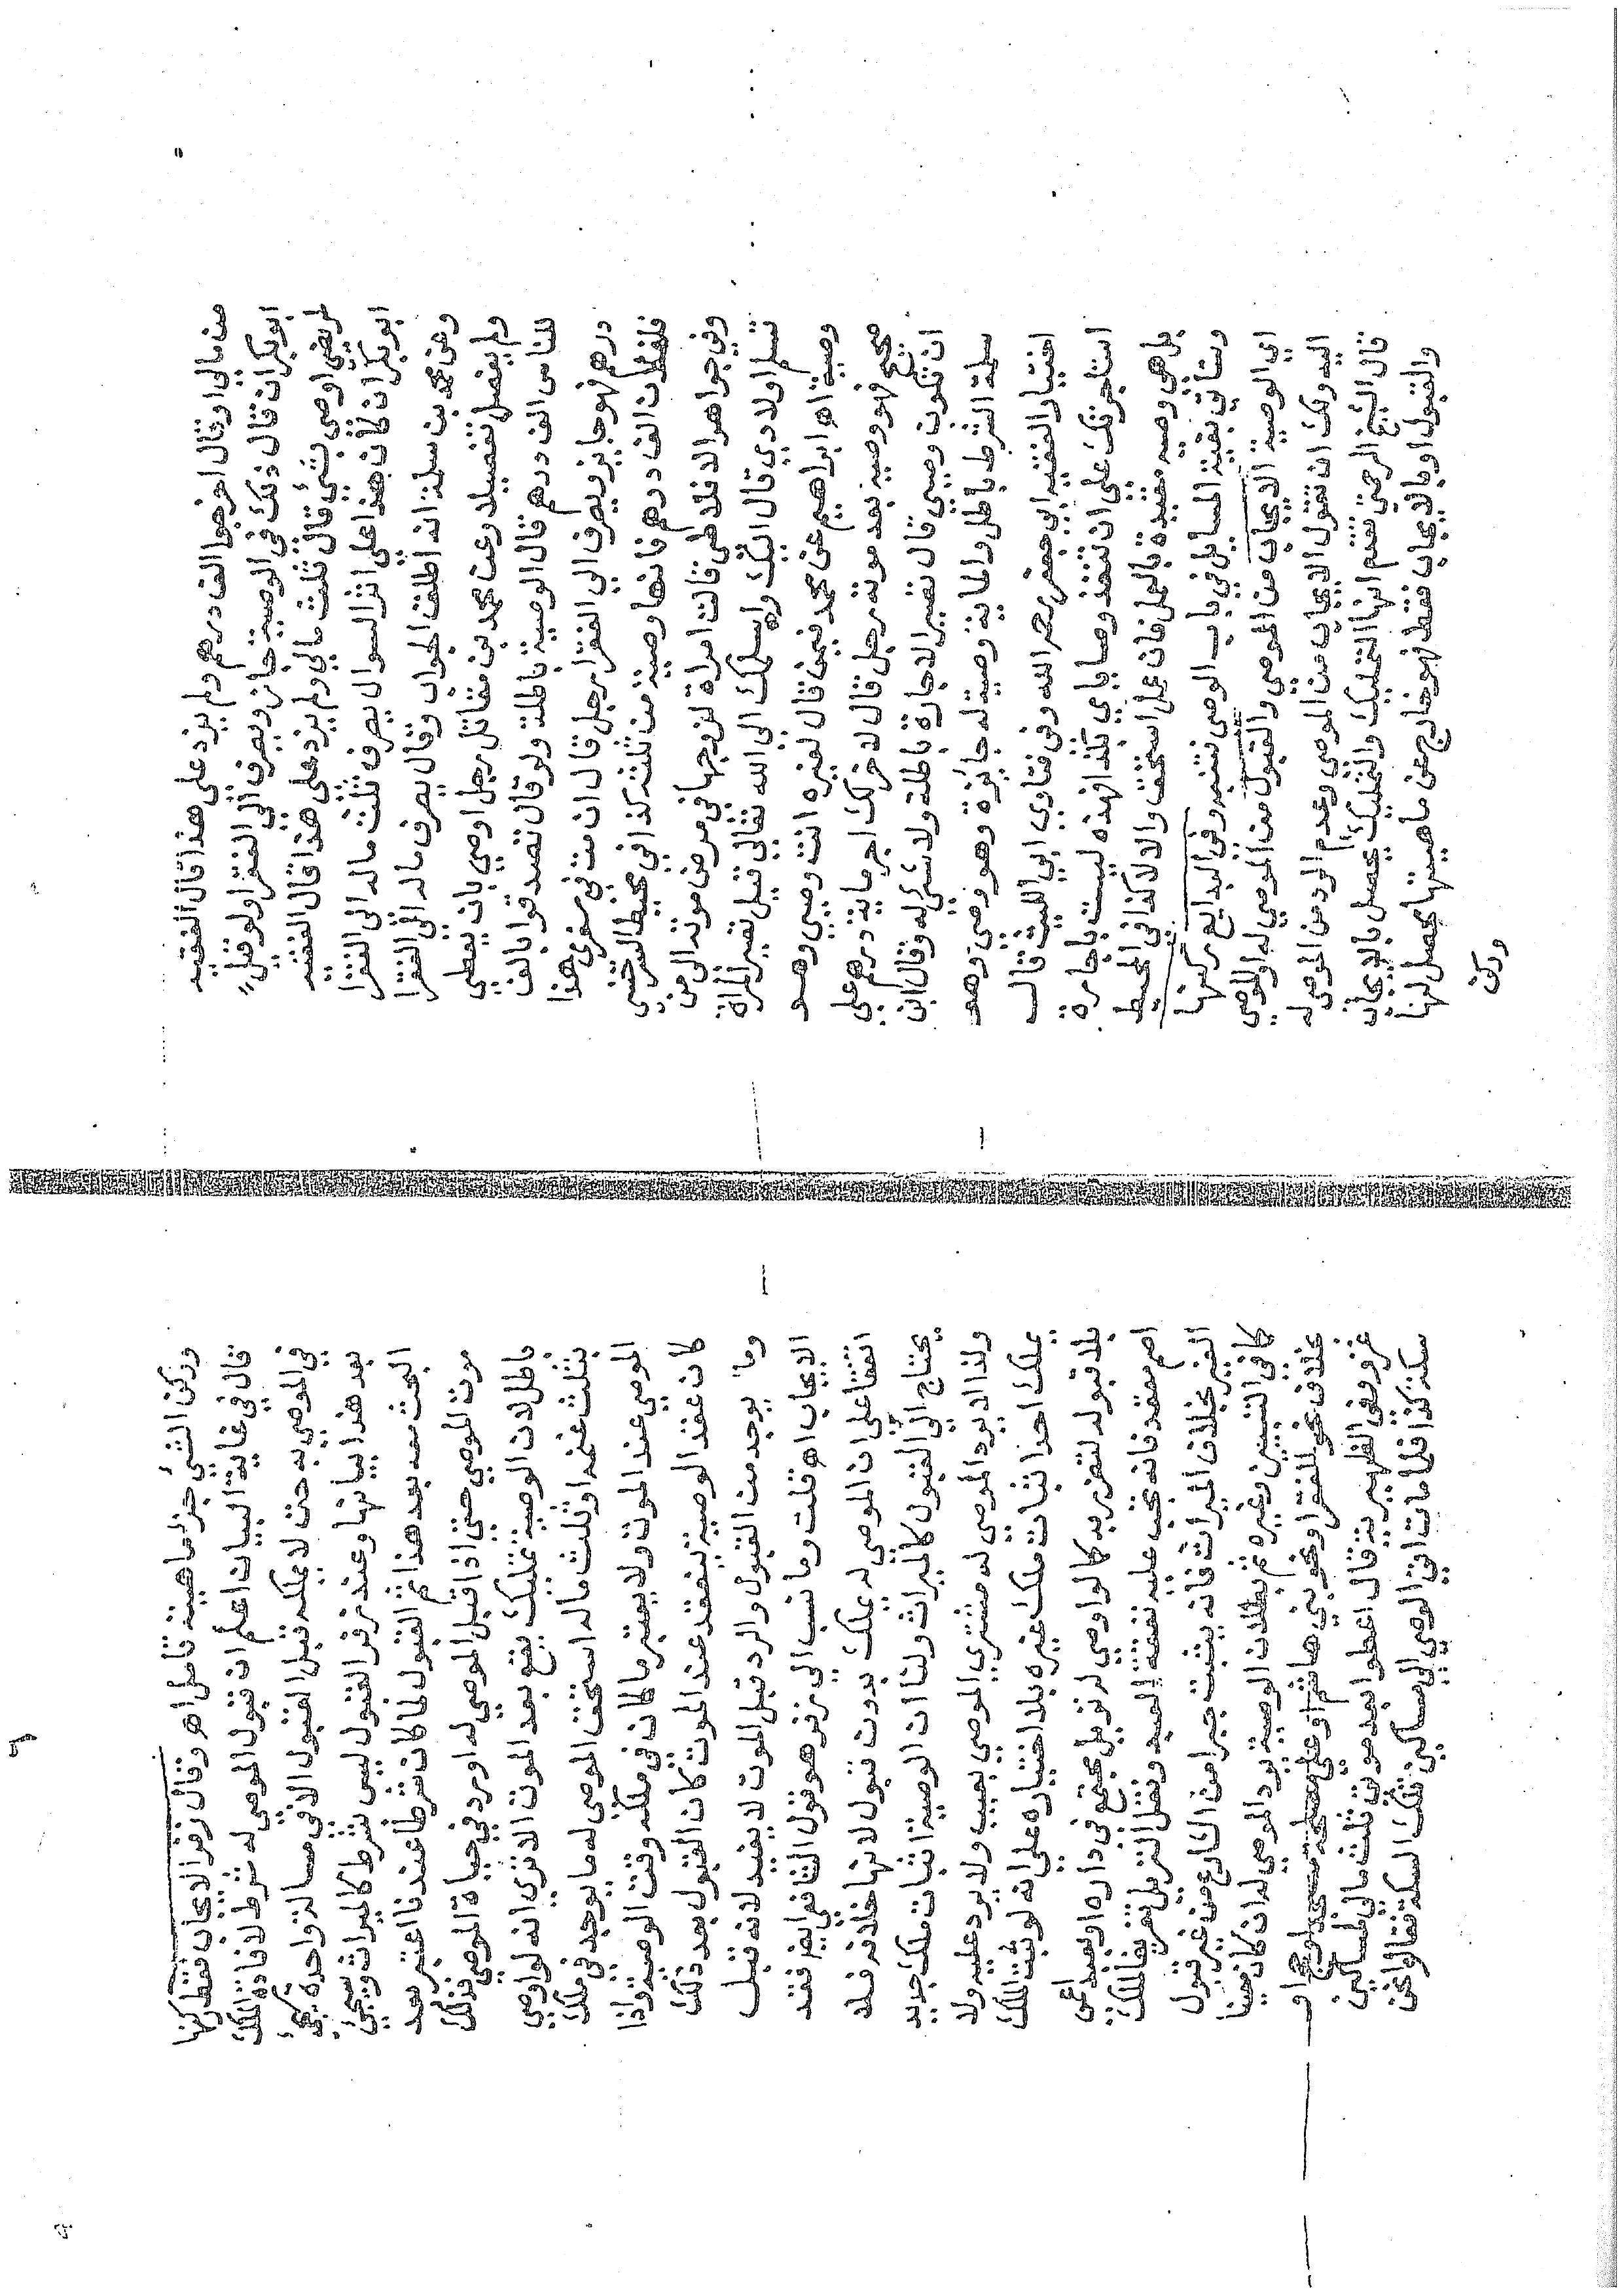 من مالي او قال اخرجوا الف درهم ولم يزد على هذا قال الفقيه
ابو بكر ان قال ذلك في الوصية جاز ويصرف الي الفقرا ولو قيل
لمريض اوصي بشيء قال ثلث مالي ولم يزد على هذا قال الفقيه
ابو بكر ان كان هذا على اثر السوال يصرف ثلث ماله الى الفقرا
وعن محمد بن سلمة انه اطلق الجواب وقال يصرف ماله الى الفقرا
ولم يفصل تفصيلا وعن محمد بن مقاتل رجل اوصى بان يعطى
للناس الف درهم قال الوصية باطلة ولو قال تصدقوا بالف
درهم فهو جايز ويصرف الي الفقرا رجل قال ان مت في سفري هذا
فلفلان الف درهم فانها وصية من ثلثه كذا في محيط السرخسي
وفي جواهر الافلاطي قالت امراة لزوجها في مرض موته الى من
تسلم اولادي قال اليك واسلمك الى الله تعالى قيل تصير المراة
وصية اه ابراهيم عن محمد فيمن قال لغيره انت وصيي وهو
صحيح فهو وصيه بعد موته رجل قال لاخر لك اجر ماية درهم على
ان تكون وصيي قال نصير الاجارة باطلة ولا شيء له وقال ابن
سلمة الشرط باطل والماية وصية له جائزة وهو وصي وهو
اختيار الفقيه ابي جعفر رحمه الله وفي فتاوى ابي الليث قال
استاجرتك على ان تنفذ وصاياي بكذا فهذه ليست باجارة
بل هي وصية مقيدة بالعمل فان عمل استحق والا لا كذا في المحيط
وستأتي بقية المسايل في باب الوصي تتمة وفي البدايع ركنها
اي الوصية الايجاب من الموصي والقبول من الموصى له او الموصى
اليه ولك ان تقول الايجاب من الموصي وعدم الرد من الموصى له
قال الشيخ الرحمتي تقدم انها التمليك والتمليك يحصل بالايجاب
والقبول او بالايجاب فقط فهو خارج عن ماهيتها يحصل لها
وركن
وركن الشيء جزء ماهيته تأمل اهـ وقال زفر الايجاب فقط ركنها
قال في غاية البيان اعلم ان قبول الموصى له شرط لافادة الملك
في الموصى به حتى لا يملكه قبل القبول الا في مسالة واحدة يجيء
بعد هذا بيانها وعند زفر القبول ليس بشرط كالميراث ويجيء
البحث معه بعد هذا ثم القبول لما كان شرطا عندنا اعتبر بعد
موت الموصي حتى اذا قبل الموصى له او رد في حياة الموصي فذلك
باطل لان الوصية تمليك يقع بعد الموت الا ترى انه لو اوصى
بثلث غنمه او ثلث ماله استحق الموصى له ما يوجد في ملك
الموصي عند الموت ولا يعتبر ما كان في ملكه وقت الوصية واذا
كان عقد الوصية ينعقد عند الموت كان القبول بعد ذلك
وما يوجد من القبول والرد قبل الموت لا يفيد لانه قبل
الايجاب اهـ قلت وما نسب الى زفر هو قول الشافعي ايضا فقد
اتفقا على ان الموصى له يملك بدون قبول لانها خلافه فلا
يحتاج الى القبول كالميراث ولنا ان الوصية اثبات ملك جديد
ولذا لا يرد الموصى له مشتري الموصي بعيب ولا يرد عليه ولا
يملك احدا ثبات ملك غيره بلا اختياره على انه لو ثبت الملك
بلا قبوله لتضرر به كما لو اوصى له بزبل مجتمع في داره او بعبد اعمى
اصم مقعد فانه تجب عليه نفقة العبد ونقل الزبل تفريغا لملك
الغير بخلاف الميراث فانه يثبت جبرا من الشارع من غير قبول
كما في التبيين وغيره ثم بطلان الوصية برد الموصى له ان كان معينا
بخلاف نحو الفقرا ونحو بني هاشم او على مصلحة مسجد او حج او
غزو وفي الظهيرية قال اعطوا بعد موتي ثلث مالي لمساكين
سكة كذا فلما مات اتى الوصي الى مساكين تلك السكة فقالوا نحن